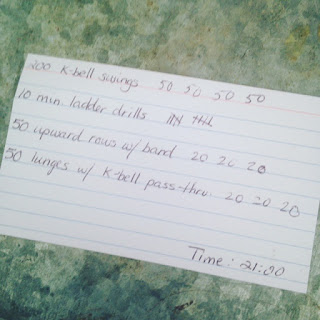 200 K-bell swings 50 50 50 50
10 min. ladder drills
50 upward rows w/ band 20 20 20
50 lunges w/ K-bell pass-thru. 20 20 20
Time: 21:00